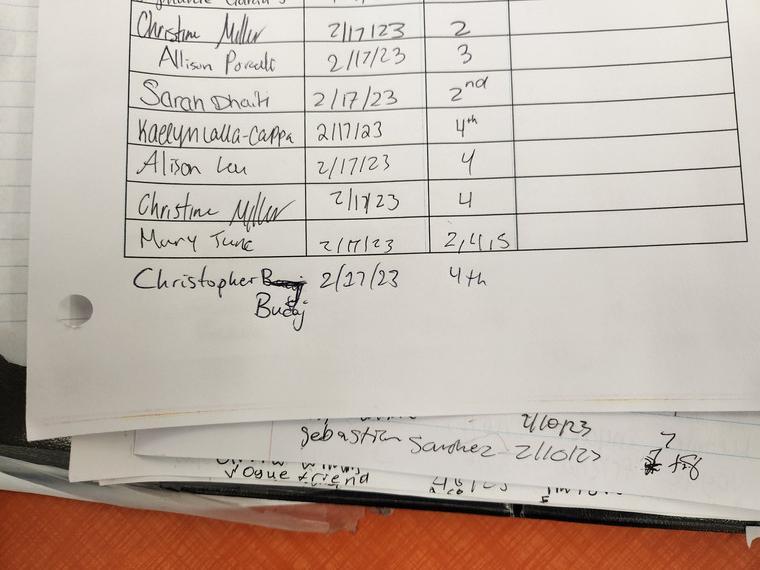 Christine Miller 2/17/23 2
Allison 2/17/23 3
Sarah Dhaiti 2/17/23 2nd
Kaelyn Lalla-Cappa 2/17/23 4th
Alison Leu 2/17/23 4
Christine Miller 2/17/23 4
Mary June 2/17/23 2,4,5
Christopher 2/17/23 4th
Budaj
2/10/23
Sebastian Sanchez 2/10/23 7
Vogue friend